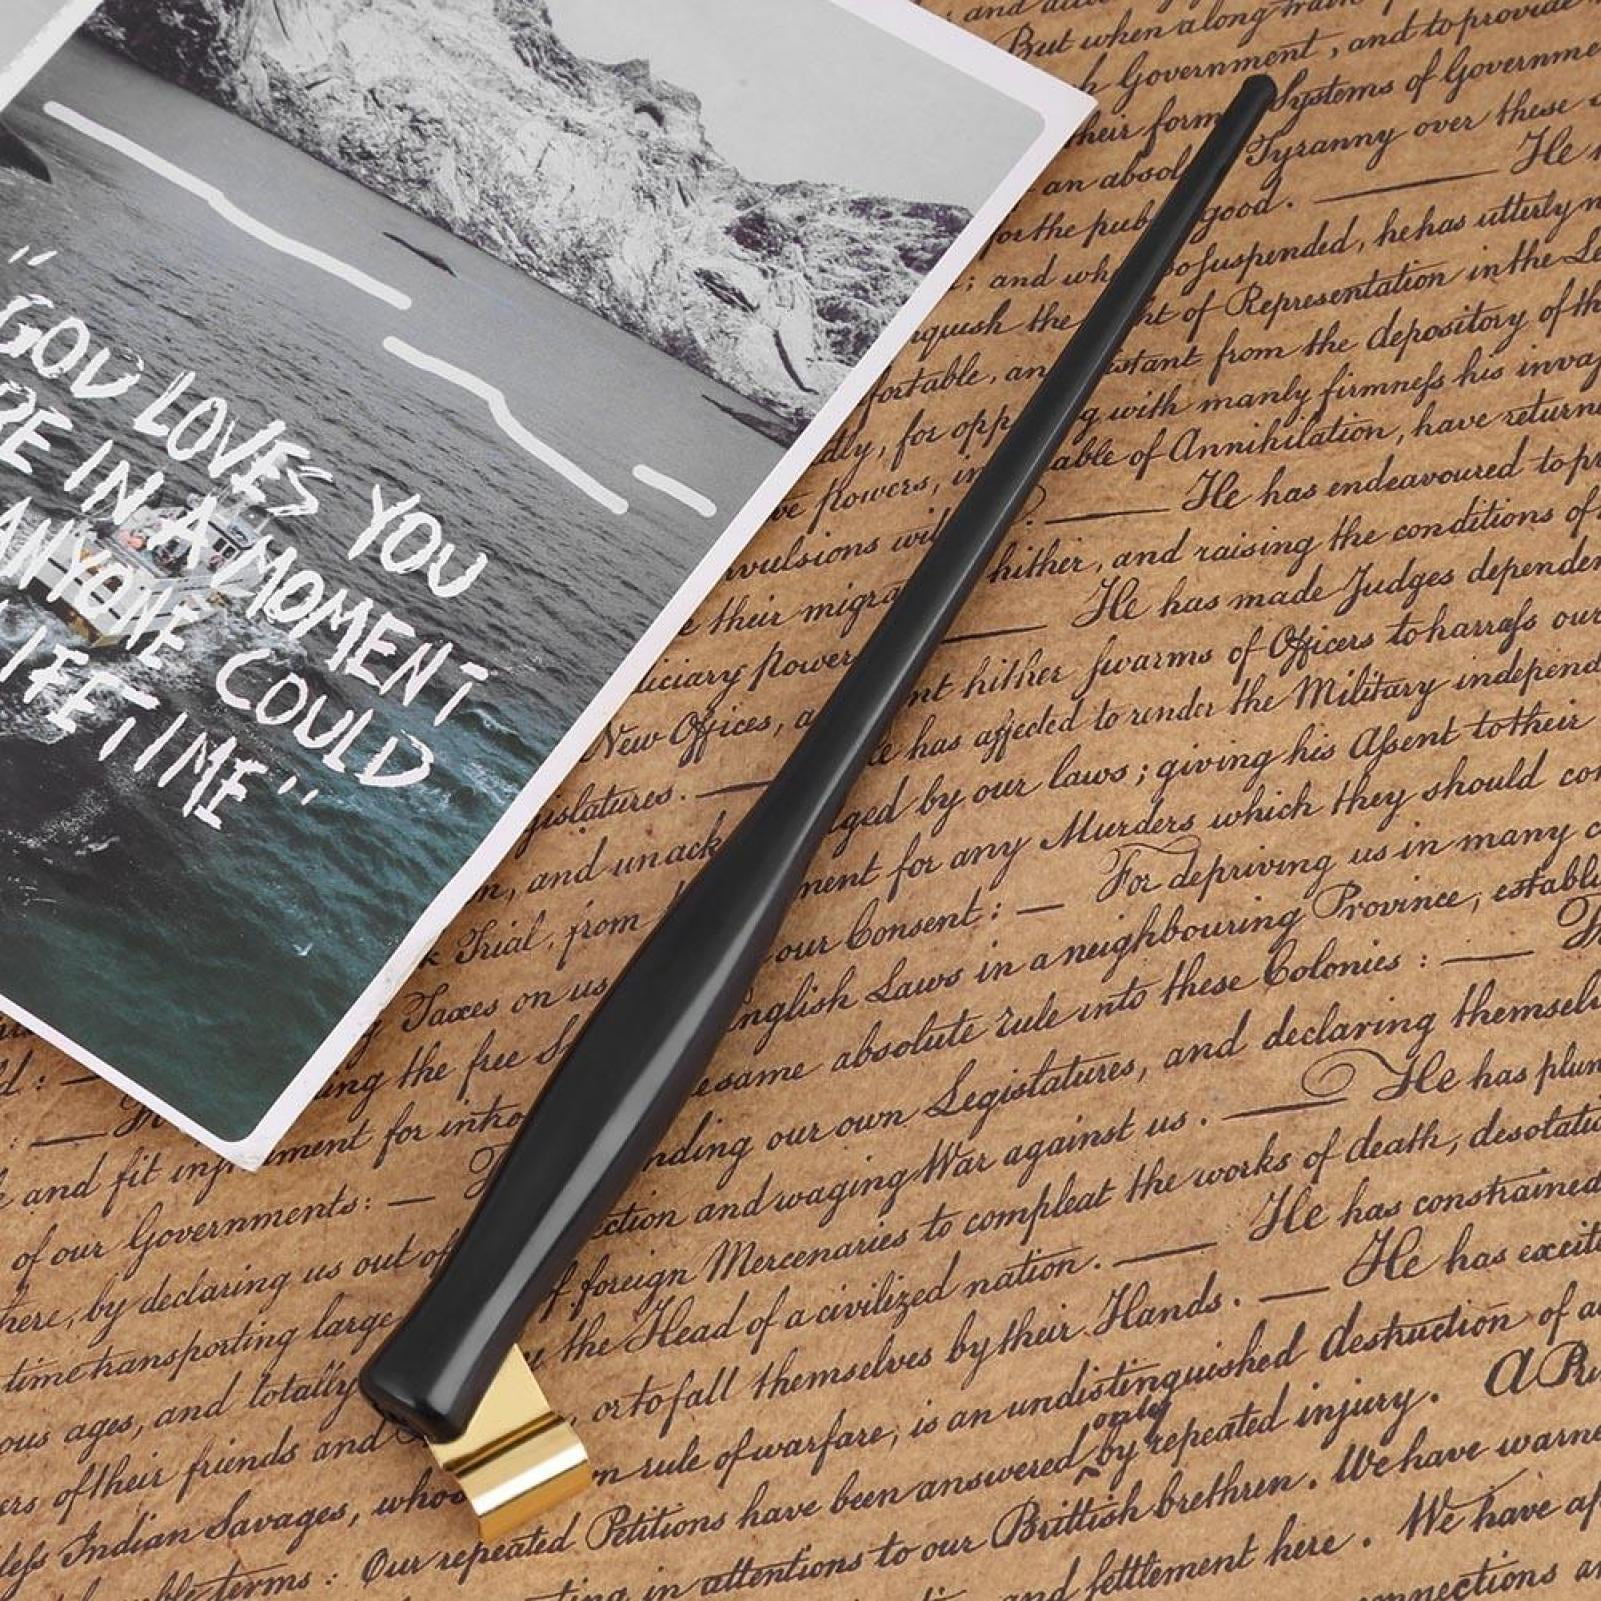 "GOD LOVES YOU
RE IN A MOMENT
ANYONE COULD
LIFETIME"
But when along train
Government, and to provide
their form Systems of Governme
an absol Tyranny over these
for the pub good. — He
; and wh so suspended, he has utterly n
quish the ht of Representation in the Le
fortable, an istant from the depository of th
dly, for opp g with manly firmneſs his inva
ve powers, in able of Annihilation, have return
nvulsions wi . — He has endeavoured to pr
e their migra hither, and raising the conditions of
iciary power — He has made Judges dependen
New Offices, a nt hither swarms of Officers to harraſs our
gislatures. — e has affected to render the Military independ
n, and unack ged by our laws; giving his Aſsent to their
Trial, from ment for any Murders which they should co
Taxes on us our Consent: — For depriving us in many c
ing the free S nglish Laws in a neighbouring Province, establi
e and fit ment for intro esame absolute rule into these Colonies : —
of our Governments: — nding our own Legislatures, and declaring themsel
here, by declaring us out of ction and waging War against us. — He has plun
time transporting large f foreign Mercenaries to compleat the works of death, desolatio
ous ages, and totally y the Head of a civilized nation. — He has constrained
ers of their friends and , or to fall themselves by their Hands. — He has excit
leſs Indian Savages, who n rule of warfare, is an undistinguished destruction of a
terms : Our repeated Petitions have been answered only by repeated injury. A Pr
ting in attentions to our Brittish brethren. We have warne
and settlement here. We have ap
onnections